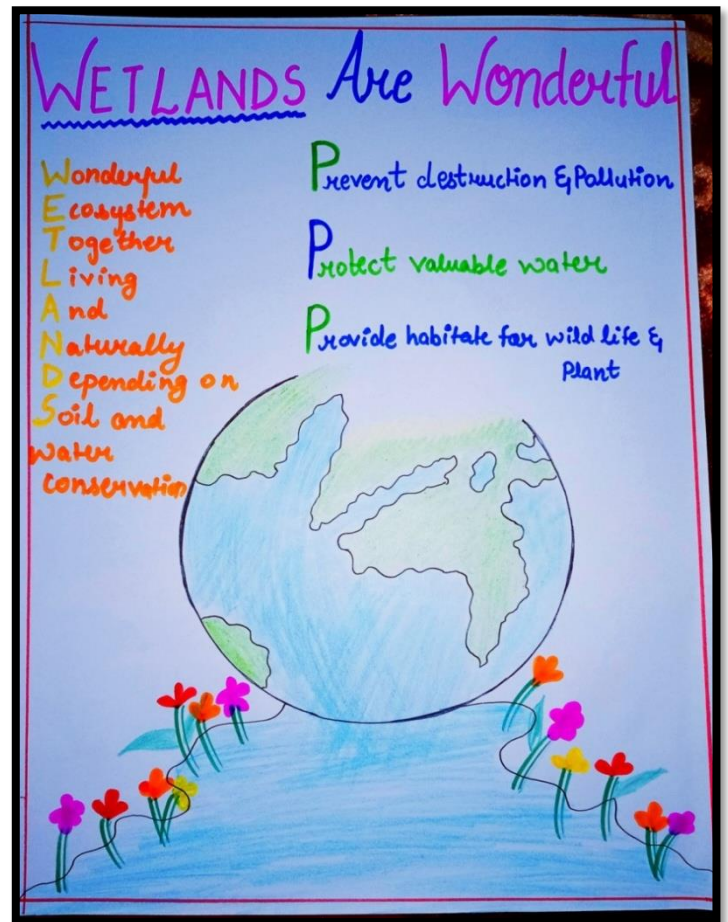 WETLANDS Are Wonderful
Wonderful
Ecosystem
Together
Living
And
Naturally
Depending on
Soil and
water
conservation
Prevent destruction & Pollution
Protect valuable water
Provide habitate for wild life &
Plant